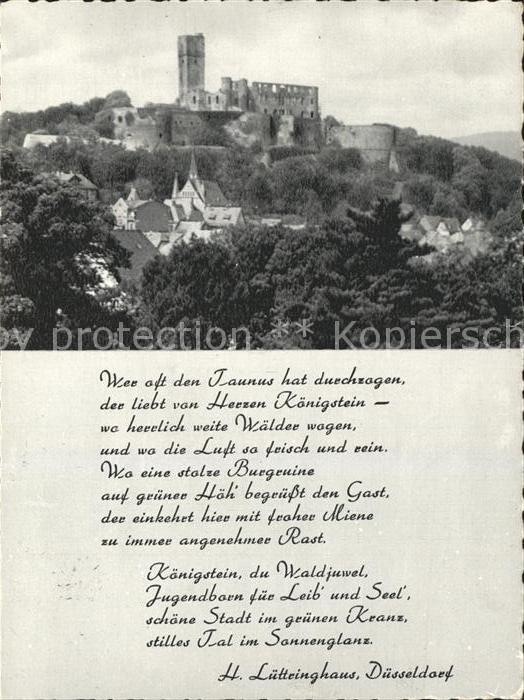 by protection ** Kopiersch
Wer oft den Taunus hat durchzogen,
der liebt von Herzen Königstein —
wo herrlich weite Wälder wogen,
und wo die Luft so frisch und rein.
Wo eine stolze Burgruine
auf grüner Höh' begrüßt den Gast,
der einkehrt hier mit froher Miene
zu immer angenehmer Rast.
Königstein, du Waldjuwel,
Jugendborn für Leib' und Seel',
schöne Stadt im grünen Kranz,
stilles Tal im Sonnenglanz.
H. Lüttringhaus, Düsseldorf